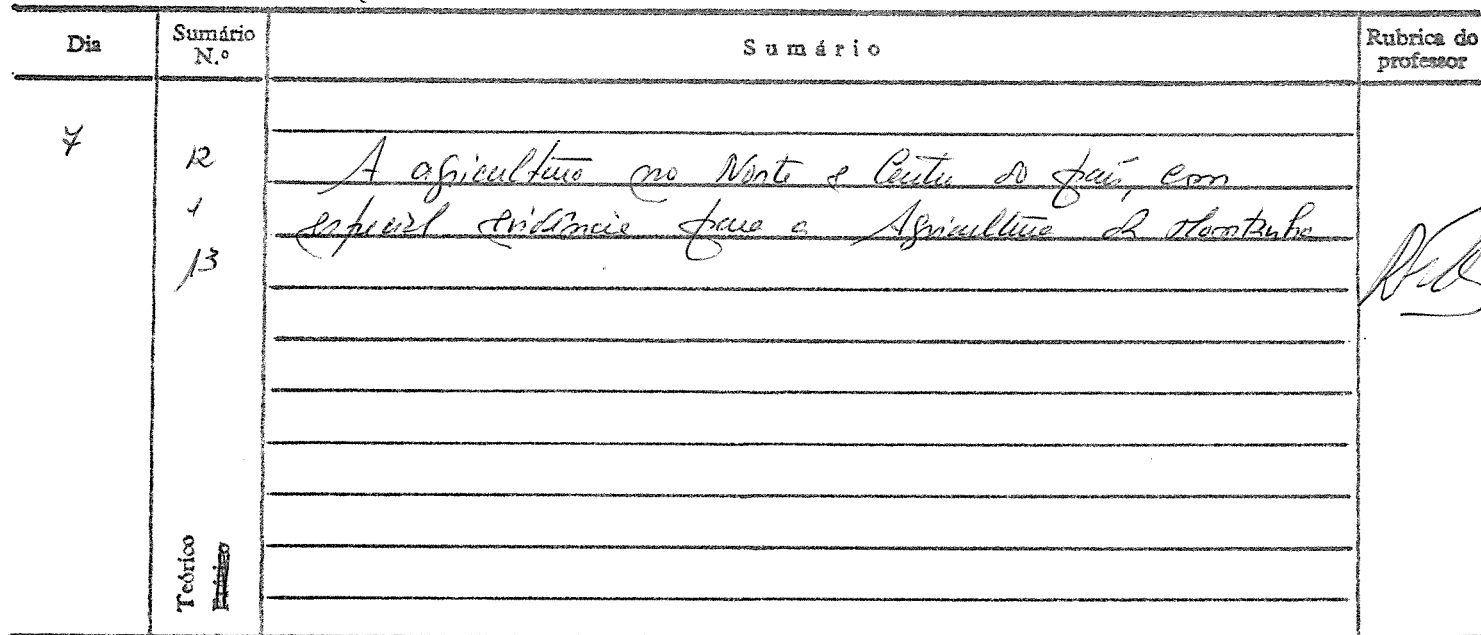 Dia Sumário N.º Sumário Rubrica do professor
7
12 A agricultura no Norte e Centro do país, com
e especial evidência para a Agricultura de Montanha
13
Teórico